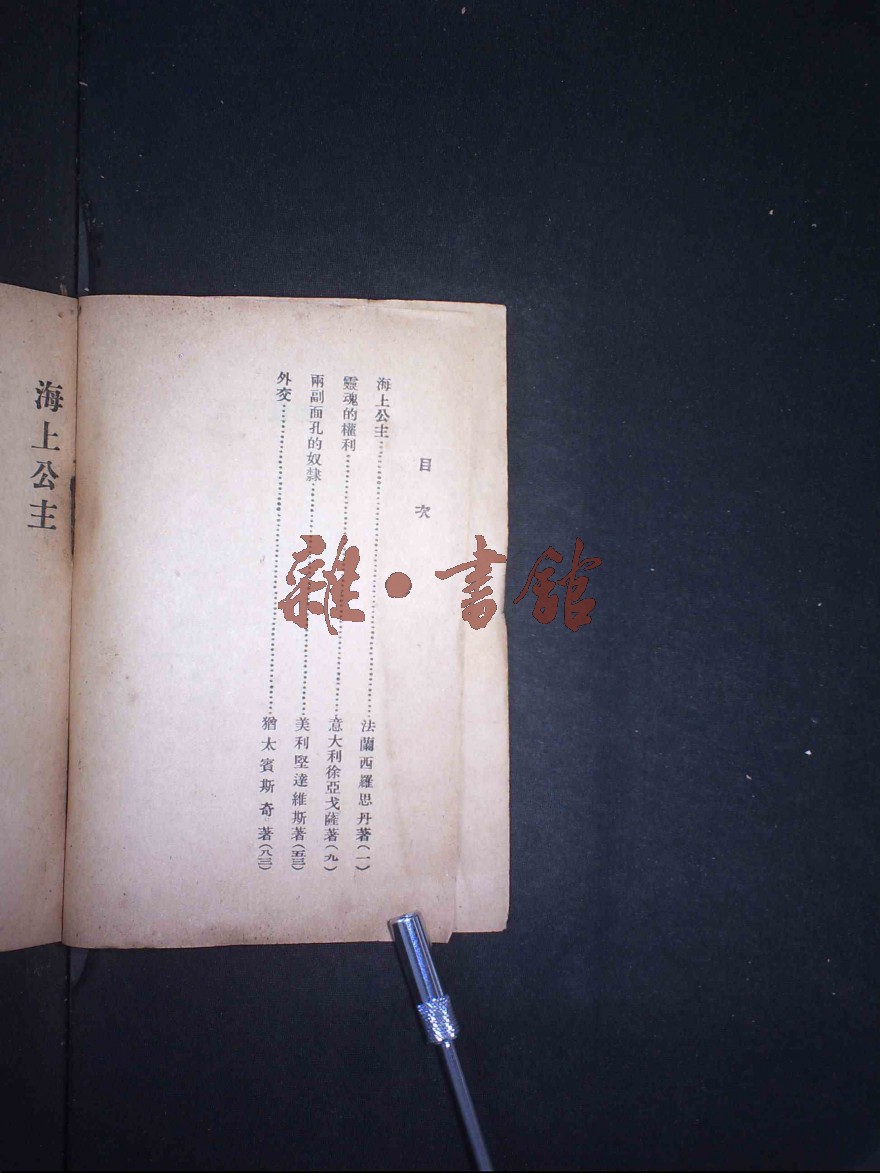 目次
海上公主……法蘭西羅思丹著(一)
靈魂的權利……意大利徐亞戈薩著(九)
兩副面孔的奴隸……美利堅達維斯著(五三)
外交……猶太賓斯奇著(八三)
海上公主
雜·書館